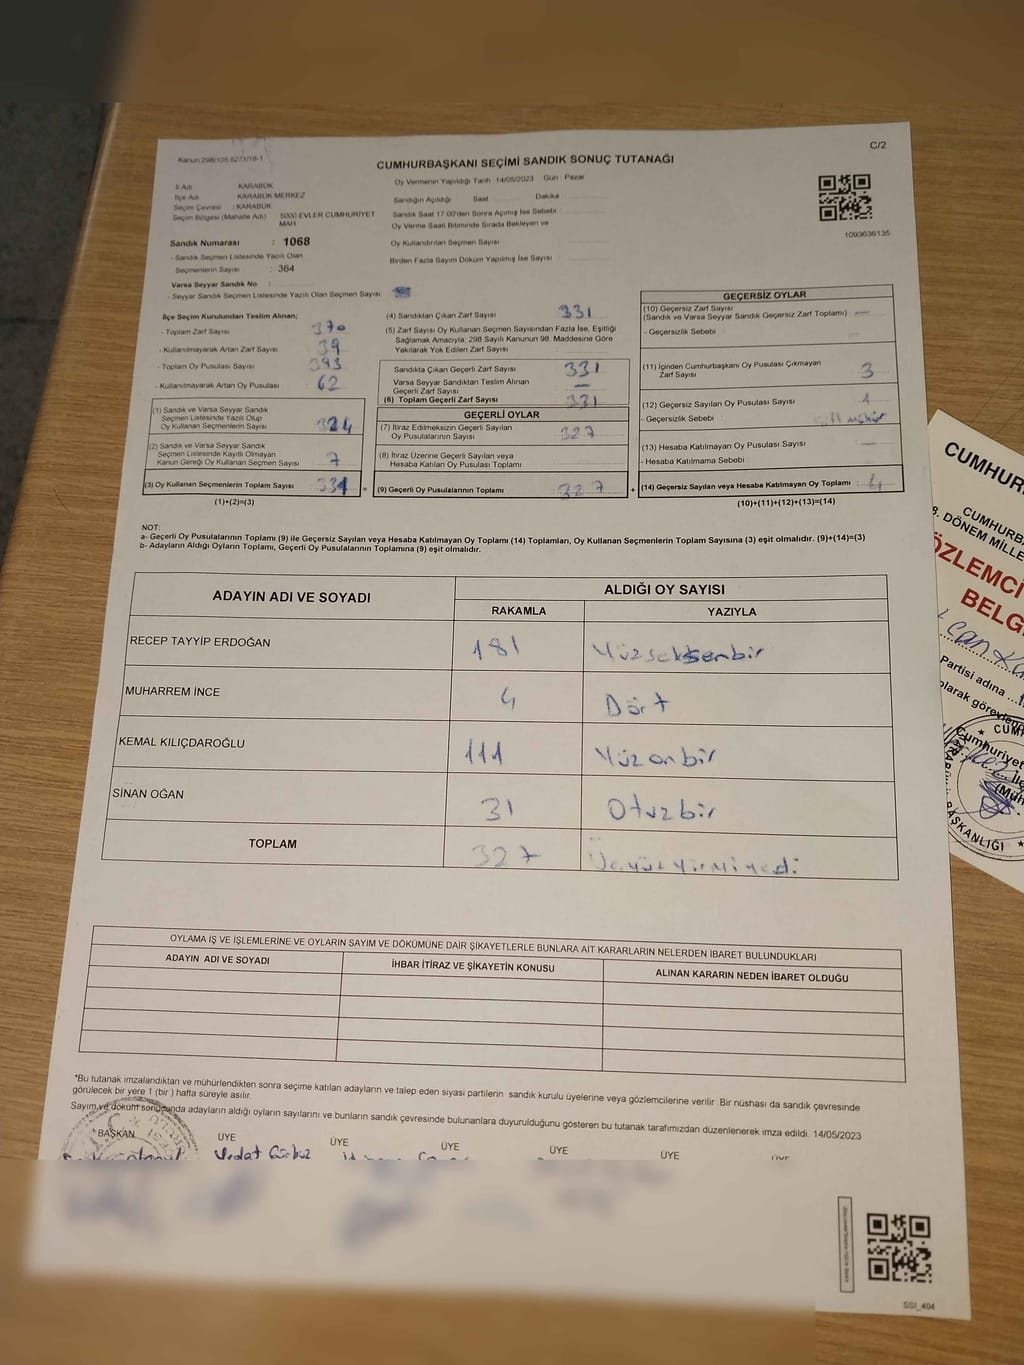 Kanun:298/105,6271/18-1
C/2
CUMHURBAŞKANI SEÇİMİ SANDIK SONUÇ TUTANAĞI
İl Adı : KARABÜK
İlçe Adı : KARABÜK MERKEZ
Seçim Çevresi : KARABÜK
Seçim Bölgesi (Mahalle Adı) : 5000 EVLER CUMHURİYET MAH
Sandık Numarası : 1068
- Sandık Seçmen Listesinde Yazılı Olan
Seçmenlerin Sayısı : 364
Varsa Seyyar Sandık No :
- Seyyar Sandık Seçmen Listesinde Yazılı Olan Seçmen Sayısı
Oy Vermenin Yapıldığı Tarih 14/05/2023 Gün : Pazar
Sandığın Açıldığı Saat Dakika
Sandık Saat 17.00'den Sonra Açılmış İse Sebebi
Oy Verme Saati Bitiminde Sırada Bekleyen ve
Oy Kullandırılan Seçmen Sayısı
Birden Fazla Sayım Döküm Yapılmış İse Sayısı
1093636135
İlçe Seçim Kurulundan Teslim Alınan;
- Toplam Zarf Sayısı 370
- Kullanılmayarak Artan Zarf Sayısı 39
- Toplam Oy Pusulası Sayısı 393
- Kullanılmayarak Artan Oy Pusulası 62
(1) Sandık ve Varsa Seyyar Sandık
Seçmen Listesinde Yazılı Olup
Oy Kullanan Seçmenlerin Sayısı 324
(2) Sandık ve Varsa Seyyar Sandık
Seçmen Listesinde Kaydı Olmayan
Kanun Gereği Oy Kullanan Seçmen Sayısı 7
(3) Oy Kullanan Seçmenlerin Toplam Sayısı 331 =
(1)+(2)=(3)
(4) Sandıktan Çıkan Zarf Sayısı 331
(5) Zarf Sayısı Oy Kullanan Seçmen Sayısından Fazla İse, Eşitliği
Sağlamak Amacıyla; 298 Sayılı Kanunun 98. Maddesine Göre
Yakılarak Yok Edilen Zarf Sayısı
Sandıkta Çıkan Geçerli Zarf Sayısı 331
Varsa Seyyar Sandıktan Teslim Alınan
Geçerli Zarf Sayısı —
(6) Toplam Geçerli Zarf Sayısı 331
GEÇERLİ OYLAR
(7) İtiraz Edilmeksizin Geçerli Sayılan
Oy Pusulalarının Sayısı 327
(8) İtiraz Üzerine Geçerli Sayılan veya
Hesaba Katılan Oy Pusulası Toplamı
(9) Geçerli Oy Pusulalarının Toplamı 327 +
GEÇERSİZ OYLAR
(10) Geçersiz Zarf Sayısı
(Sandık ve Varsa Seyyar Sandık Geçersiz Zarf Toplamı) —
- Geçersizlik Sebebi :
(11) İçinden Cumhurbaşkanı Oy Pusulası Çıkmayan
Zarf Sayısı 3
(12) Geçersiz Sayılan Oy Pusulası Sayısı 1
- Geçersizlik Sebebi :
(13) Hesaba Katılmayan Oy Pusulası Sayısı
- Hesaba Katılmama Sebebi :
(14) Geçersiz Sayılan veya Hesaba Katılmayan Oy Toplamı : 4
(10)+(11)+(12)+(13)=(14)
NOT:
a- Geçerli Oy Pusulalarının Toplamı (9) ile Geçersiz Sayılan veya Hesaba Katılmayan Oy Toplamı (14) Toplamları, Oy Kullanan Seçmenlerin Toplam Sayısına (3) eşit olmalıdır. (9)+(14)=(3)
b- Adayların Aldığı Oyların Toplamı, Geçerli Oy Pusulalarının Toplamına (9) eşit olmalıdır.
ADAYIN ADI VE SOYADI
ALDIĞI OY SAYISI
RAKAMLA YAZIYLA
RECEP TAYYİP ERDOĞAN 181 Yüzseksenbir
MUHARREM İNCE 4 Dört
KEMAL KILIÇDAROĞLU 111 Yüzonbir
SİNAN OĞAN 31 Otuzbir
TOPLAM 327 Üçyüzyirmiyedi
OYLAMA İŞ VE İŞLEMLERİNE VE OYLARIN SAYIM VE DÖKÜMÜNE DAİR ŞİKAYETLERLE BUNLARA AİT KARARLARIN NELERDEN İBARET BULUNDUKLARI
ADAYIN ADI VE SOYADI İHBAR İTİRAZ VE ŞİKAYETİN KONUSU ALINAN KARARIN NEDEN İBARET OLDUĞU
*Bu tutanak imzalandıktan ve mühürlendikten sonra seçime katılan adayların ve talep eden siyasi partilerin sandık kurulu üyelerine veya gözlemcilerine verilir. Bir nüshası da sandık çevresinde
görülecek bir yere 1 (bir ) hafta süreyle asılır.
Sayım ve döküm sonucunda adayların aldığı oyların sayılarını ve bunların sandık çevresinde bulunanlara duyurulduğunu gösteren bu tutanak tarafımızdan düzenlenerek imza edildi. 14/05/2023
BAŞKAN ÜYE ÜYE ÜYE ÜYE ÜYE ÜYE
Vedat Gürbüz
SSI_404
CUMHUR
CUMHURB
8. DÖNEM MİLLE
ÖZLEMCİ
BELG
Partisi adına
olarak görevlend
CUM
Cumhuriyet
İlç
(Müh
BAŞKANLIĞI